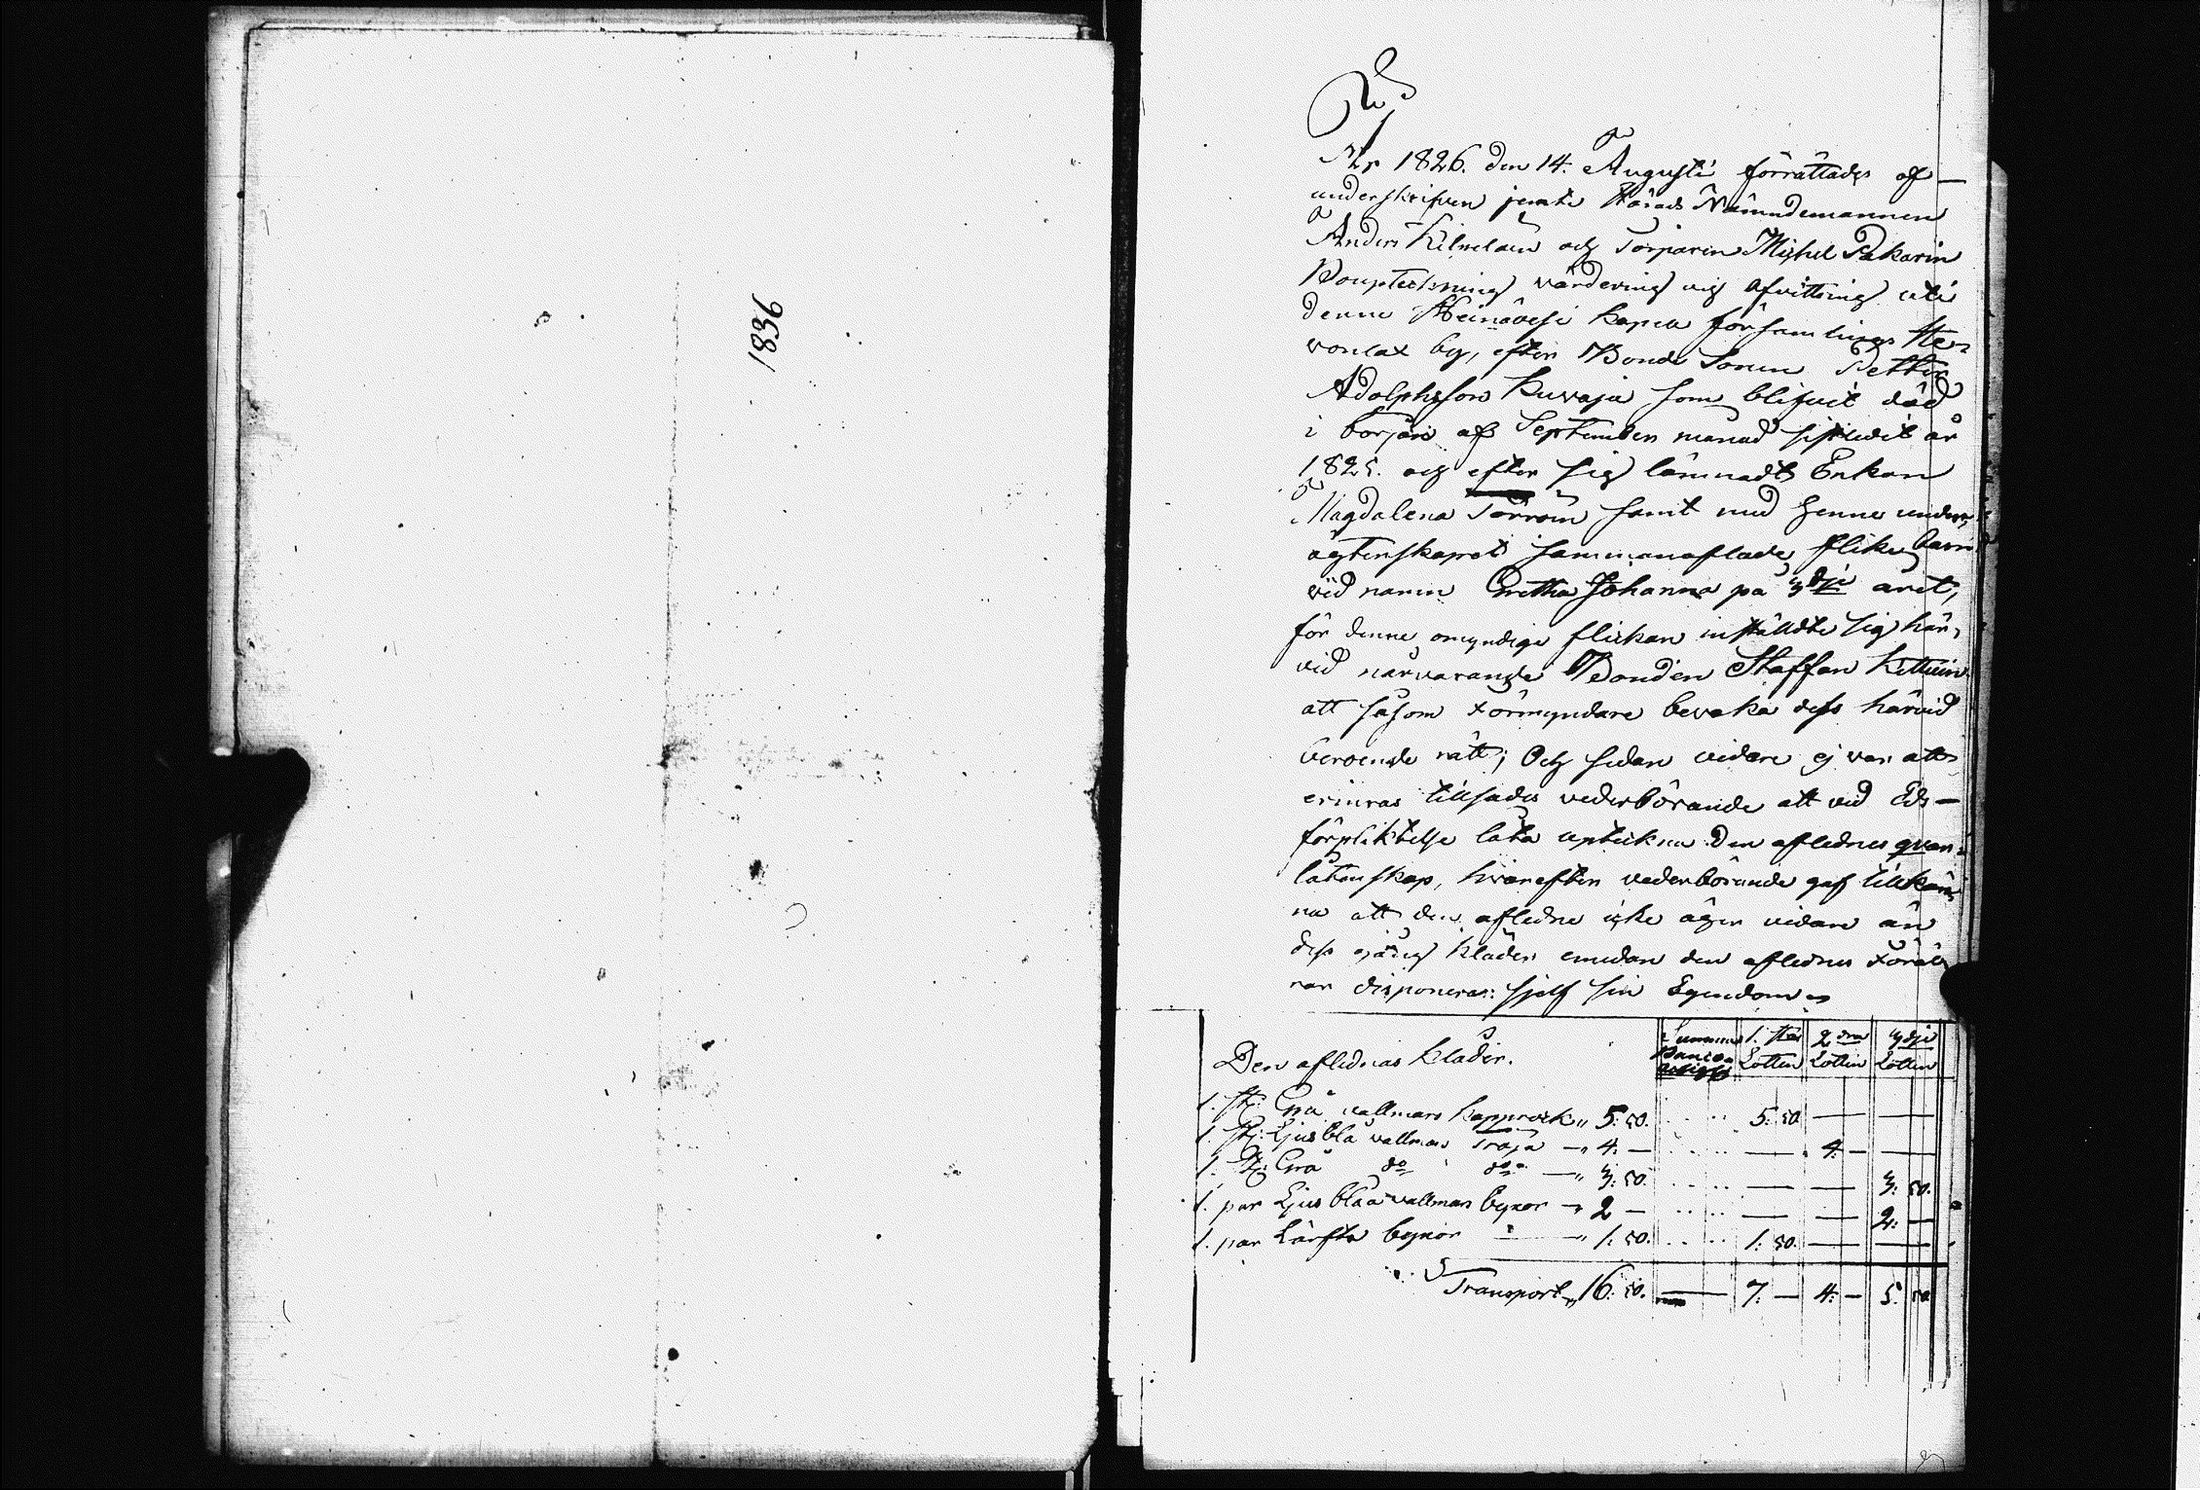 1836
År 1826. den 14. Augusti förrättades af
underskrifven jemte Härads Nämndemannen
Anders och Torparen Michel Pakarin
Bouptekning värdering och afvittring uti
denne Heinävesi Kapell församlings Her-
vonlax by, efter Bonde Sonen Petter
Adolphsson Kuvaja som blifvit död
i början af September månad sistledit år
1825. och efter sig lämnadt Enkan
Magdalena Torroin samt med henne under
ägtenskapet sammanaflade flike barn
vid namn Gretha Johanna på 3dje året,
för denne omyndige flickan instälte sig här-
vid närvarande Bonden Staffan
att såsom Förmyndare bevaka dess härvid
beroende rätt; Och sedan vidare ej var att
erinras tillsades vederbörande att vid Eds-
förpliktelse låta upteckna Den aflednes qvar-
låtenskap, hvarefter vederbörande gaf tillkän-
na att den aflidne icke äger vidare än
dess egäng kläder emedan den aflednes Föräld
rar disponerar sjelf sin Egendom
Den aflednas kläder.
Summa Banco 1.sta Lotten 2dra Lotten 3dje Lotten
1. st: Grå vallmars kapprock " 5: 50. 5: 50 — —
1. st: Ljusblå vallmars Tröja — " 4: — — 4: — —
1. st: Grå do do — " 3: 50. — — 3: 50.
1. par Ljusblåa vallmars byxor — " 2 — — — 2: —
1. par Lärfts byxor — " 1: 50. 1: 50. — —
Transport " 16: 50. — 7: — 4: — 5: 50